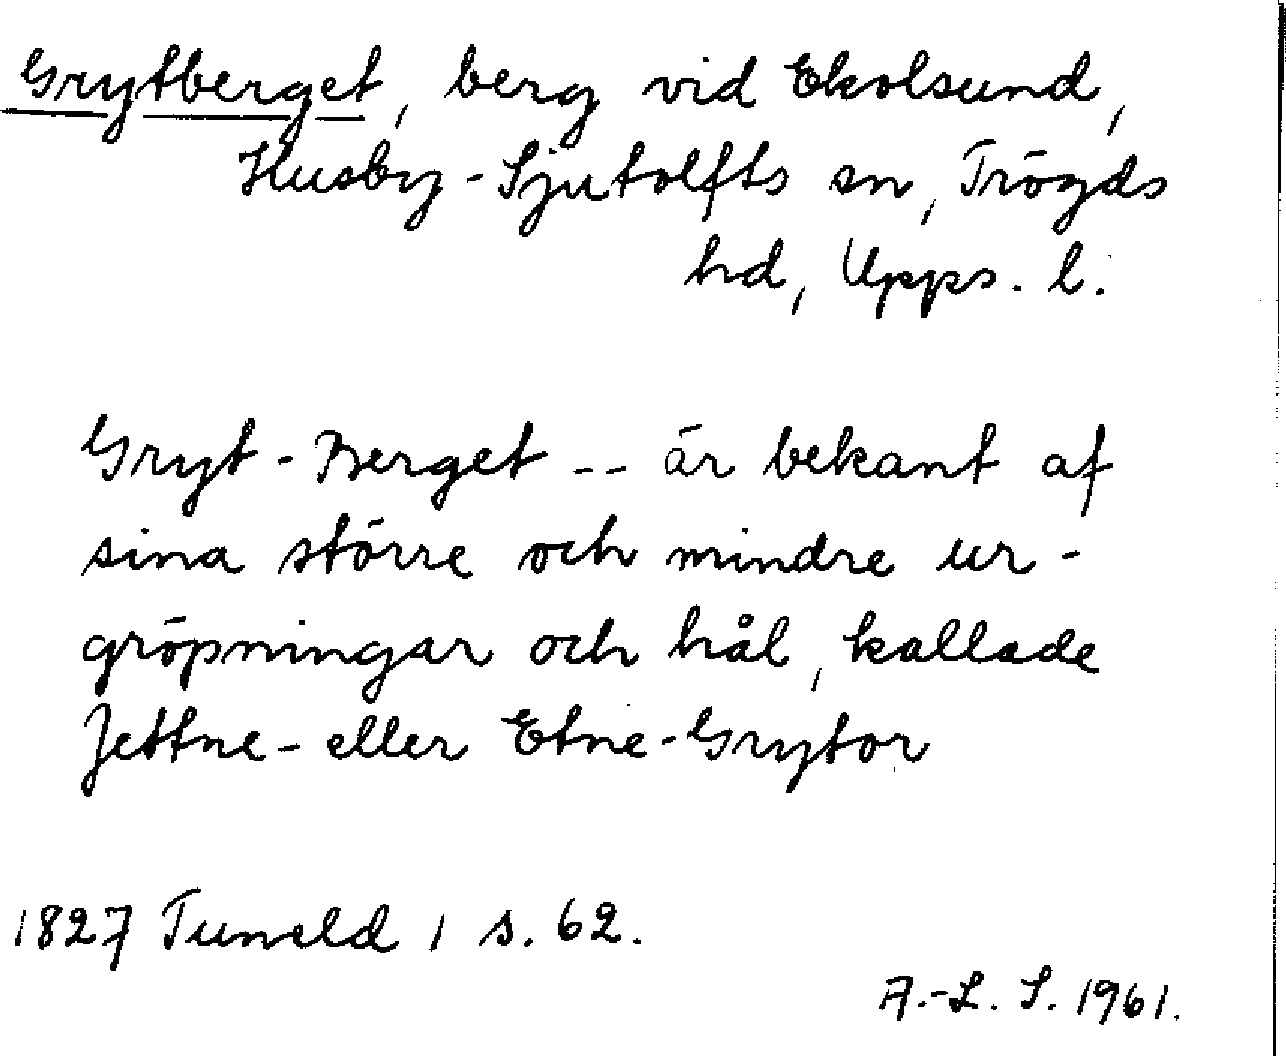 Grytberget, berg vid Ekolsund,
Husby-Sjutolfts sn, Trögds
hd, Upps. l.
Gryt-Berget -- är bekant af
sina större och mindre ur-
gröpningar och hål, kallade
Jettne- eller Etne-Grytor
1827 Tuneld 1 s. 62.
A.-L. S. 1961.